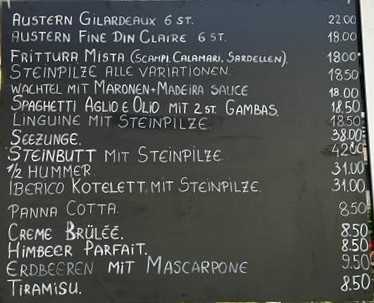 Austern Gilardeaux 6 st. 22.00
Austern Fine Din Claire 6 st. 18.00
Frittura Mista (Scampi, Calamari, Sardellen). 18.00
Steinpilze alle Variationen. 18.50
Wachtel mit Maronen+Madeira Sauce 18.00
Spaghetti Aglio e Olio mit 2 st. Gambas. 18.50
Linguine mit Steinpilze 18.50
Seezunge. 38.00
Steinbutt mit Steinpilze 42.00
1/2 Hummer. 31.00
Iberico Kotelett mit Steinpilze. 31.00
Panna Cotta. 8.50
Creme Brûlée. 8.50
Himbeer Parfait. 8.50
Erdbeeren mit Mascarpone 9.50
Tiramisu. 8.50